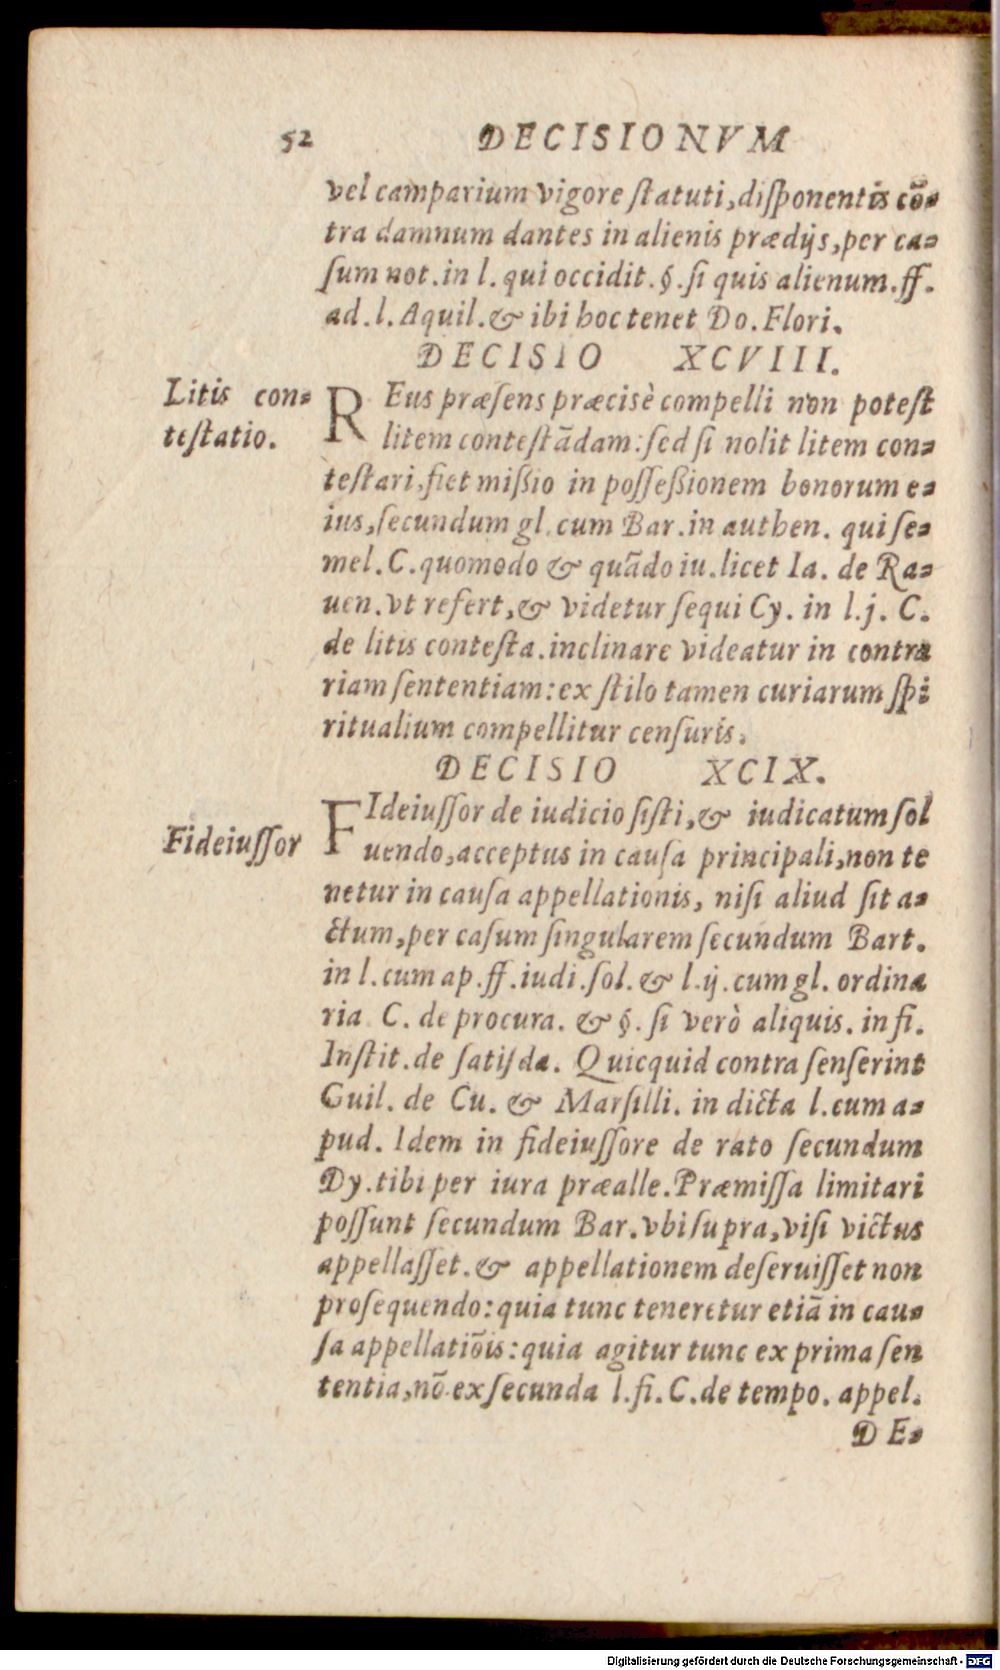 52 DECISIONVM
vel camparium vigore ſtatuti, diſponentis cõ-
tra damnum dantes in alienis prædijs, per ca-
ſum not. in l. qui occidit. §. ſi quis alienum. ff.
ad. l. Aquil. & ibi hoc tenet Do. Flori.
DECISIO XCVIII.
Litis con-
teſtatio.
REus præſens præcisè compelli non poteſt
litem conteſtãdam: ſed ſi nolit litem con-
teſtari, fiet mißio in poſſeßionem bonorum e-
ius, ſecundum gl. cum Bar. in authen. qui ſe-
mel. C. quomodo & quãdo iu. licet Ia. de Ra-
uen. vt refert, & videtur ſequi Cy. in l. j. C.
de litis conteſta. inclinare videatur in contra
riam ſententiam: ex ſtilo tamen curiarum ſpi
ritualium compellitur cenſuris.
DECISIO XCIX.
Fideiuſſor
FIdeiuſſor de iudicio ſiſti, & iudicatum ſol
uendo, acceptus in cauſa principali, non te
netur in cauſa appellationis, niſi aliud ſit a-
ctum, per caſum ſingularem ſecundum Bart.
in l. cum ap. ff. iudi. ſol. & l. ij. cum gl. ordina
ria C. de procura. & §. ſi verò aliquis. in fi.
Inſtit. de ſatiſda. Quicquid contra ſenſerint
Guil. de Cu. & Marſilli. in dicta l. cum a-
pud. Idem in fideiuſſore de rato ſecundum
Dy. tibi per iura præalle. Præmiſſa limitari
poſſunt ſecundum Bar. vbi ſupra, viſi victus
appellaſſet. & appellationem deſeruiſſet non
proſequendo: quia tunc teneretur etiã in cau-
ſa appellatiõis: quia agitur tunc ex prima ſen
tentia, nõ ex ſecunda l. fi. C. de tempo. appel.
DE-
Digitalisierung gefördert durch die Deutsche Forschungsgemeinschaft - DFG